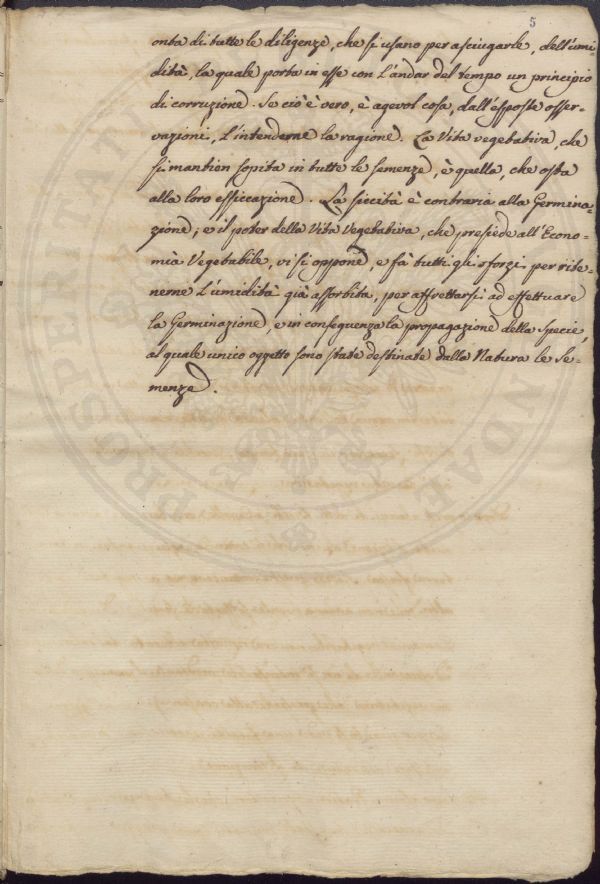 5
onta di tutte le diligenze, che si usano per asciugarle, dell'umi-
dità, la quale porta in esse con l'andar del tempo un principio
di corruzione. Se ciò è vero, è agevol cosa, dall'esposte osser-
vazioni, l'intenderne la ragione. La Vita vegetativa, che
si mantien sopita in tutte le semenze, è quella, che osta
alla loro essicazione. La siccità è contraria alla Germina-
zione; e il poter della Vita Vegetativa, che presiede all'Econo-
mia Vegetabile, vi si oppone, e fà tutti gli sforzi per rite-
nerne l'umidità già assorbita, per affrettarsi ad effettuare
la Germinazione, e in conseguenza la propagazione della specie,
al quale unico oggetto sono state destinate dalla Natura le Se-
menze.